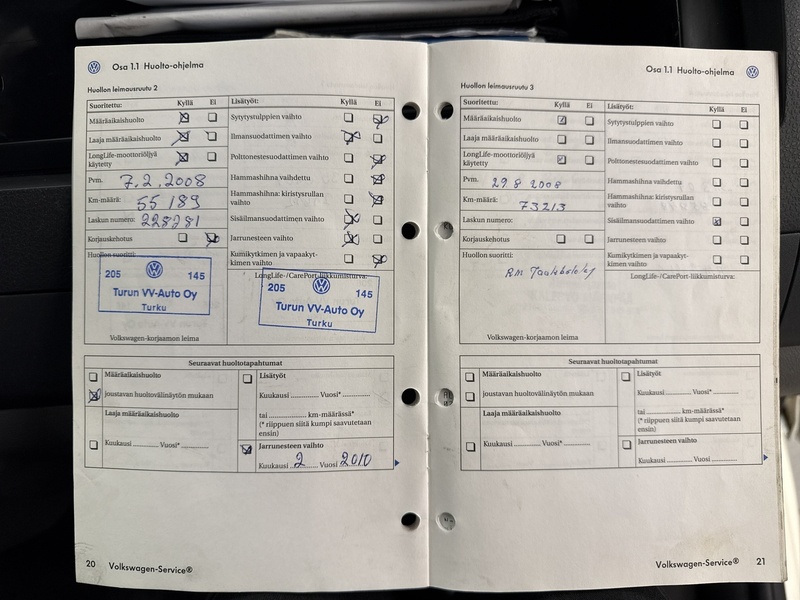 Osa 1.1 Huolto-ohjelma
Huollon leimausruutu 2
Suoritettu: Kyllä Ei
Määräaikaishuolto
Laaja määräaikaishuolto
LongLife-moottoriöljyä
käytetty
Pvm. 7.2.2008
Km-määrä: 55 189
Laskun numero: 228281
Korjauskehotus
Huollon suoritti:
205 145
Turun VV-Auto Oy
Turku
Volkswagen-korjaamon leima
Lisätyöt: Kyllä Ei
Sytytystulppien vaihto
Ilmansuodattimen vaihto
Polttonestesuodattimen vaihto
Hammashihna vaihdettu
Hammashihna: kiristysrullan
vaihto
Sisäilmansuodattimen vaihto
Jarrunesteen vaihto
Kumikytkimen ja vapaakyt-
kimen vaihto
LongLife-/CarePort-liikkumisturva:
205 145
Turun VV-Auto Oy
Turku
Seuraavat huoltotapahtumat
Määräaikaishuolto
joustavan huoltovälinäytön mukaan
Laaja määräaikaishuolto
Kuukausi ........... Vuosi* ...........
Lisätyöt
Kuukausi ........... Vuosi* ...........
tai ........... km-määrässä*
(* riippuen siitä kumpi saavutetaan
ensin)
Jarrunesteen vaihto
Kuukausi 2 Vuosi 2010
20 Volkswagen-Service®
Osa 1.1 Huolto-ohjelma
Huollon leimausruutu 3
Suoritettu: Kyllä Ei
Määräaikaishuolto
Laaja määräaikaishuolto
LongLife-moottoriöljyä
käytetty
Pvm. 29 8 2008
Km-määrä: 73213
Laskun numero:
Korjauskehotus
Huollon suoritti:
RM
Volkswagen-korjaamon leima
Lisätyöt: Kyllä Ei
Sytytystulppien vaihto
Ilmansuodattimen vaihto
Polttonestesuodattimen vaihto
Hammashihna vaihdettu
Hammashihna: kiristysrullan
vaihto
Sisäilmansuodattimen vaihto
Jarrunesteen vaihto
Kumikytkimen ja vapaakyt-
kimen vaihto
LongLife-/CarePort-liikkumisturva:
Seuraavat huoltotapahtumat
Määräaikaishuolto
joustavan huoltovälinäytön mukaan
Laaja määräaikaishuolto
Kuukausi ........... Vuosi* ...........
Lisätyöt
Kuukausi ........... Vuosi* ...........
tai ........... km-määrässä*
(* riippuen siitä kumpi saavutetaan
ensin)
Jarrunesteen vaihto
Kuukausi ........... Vuosi ...........
Volkswagen-Service® 21